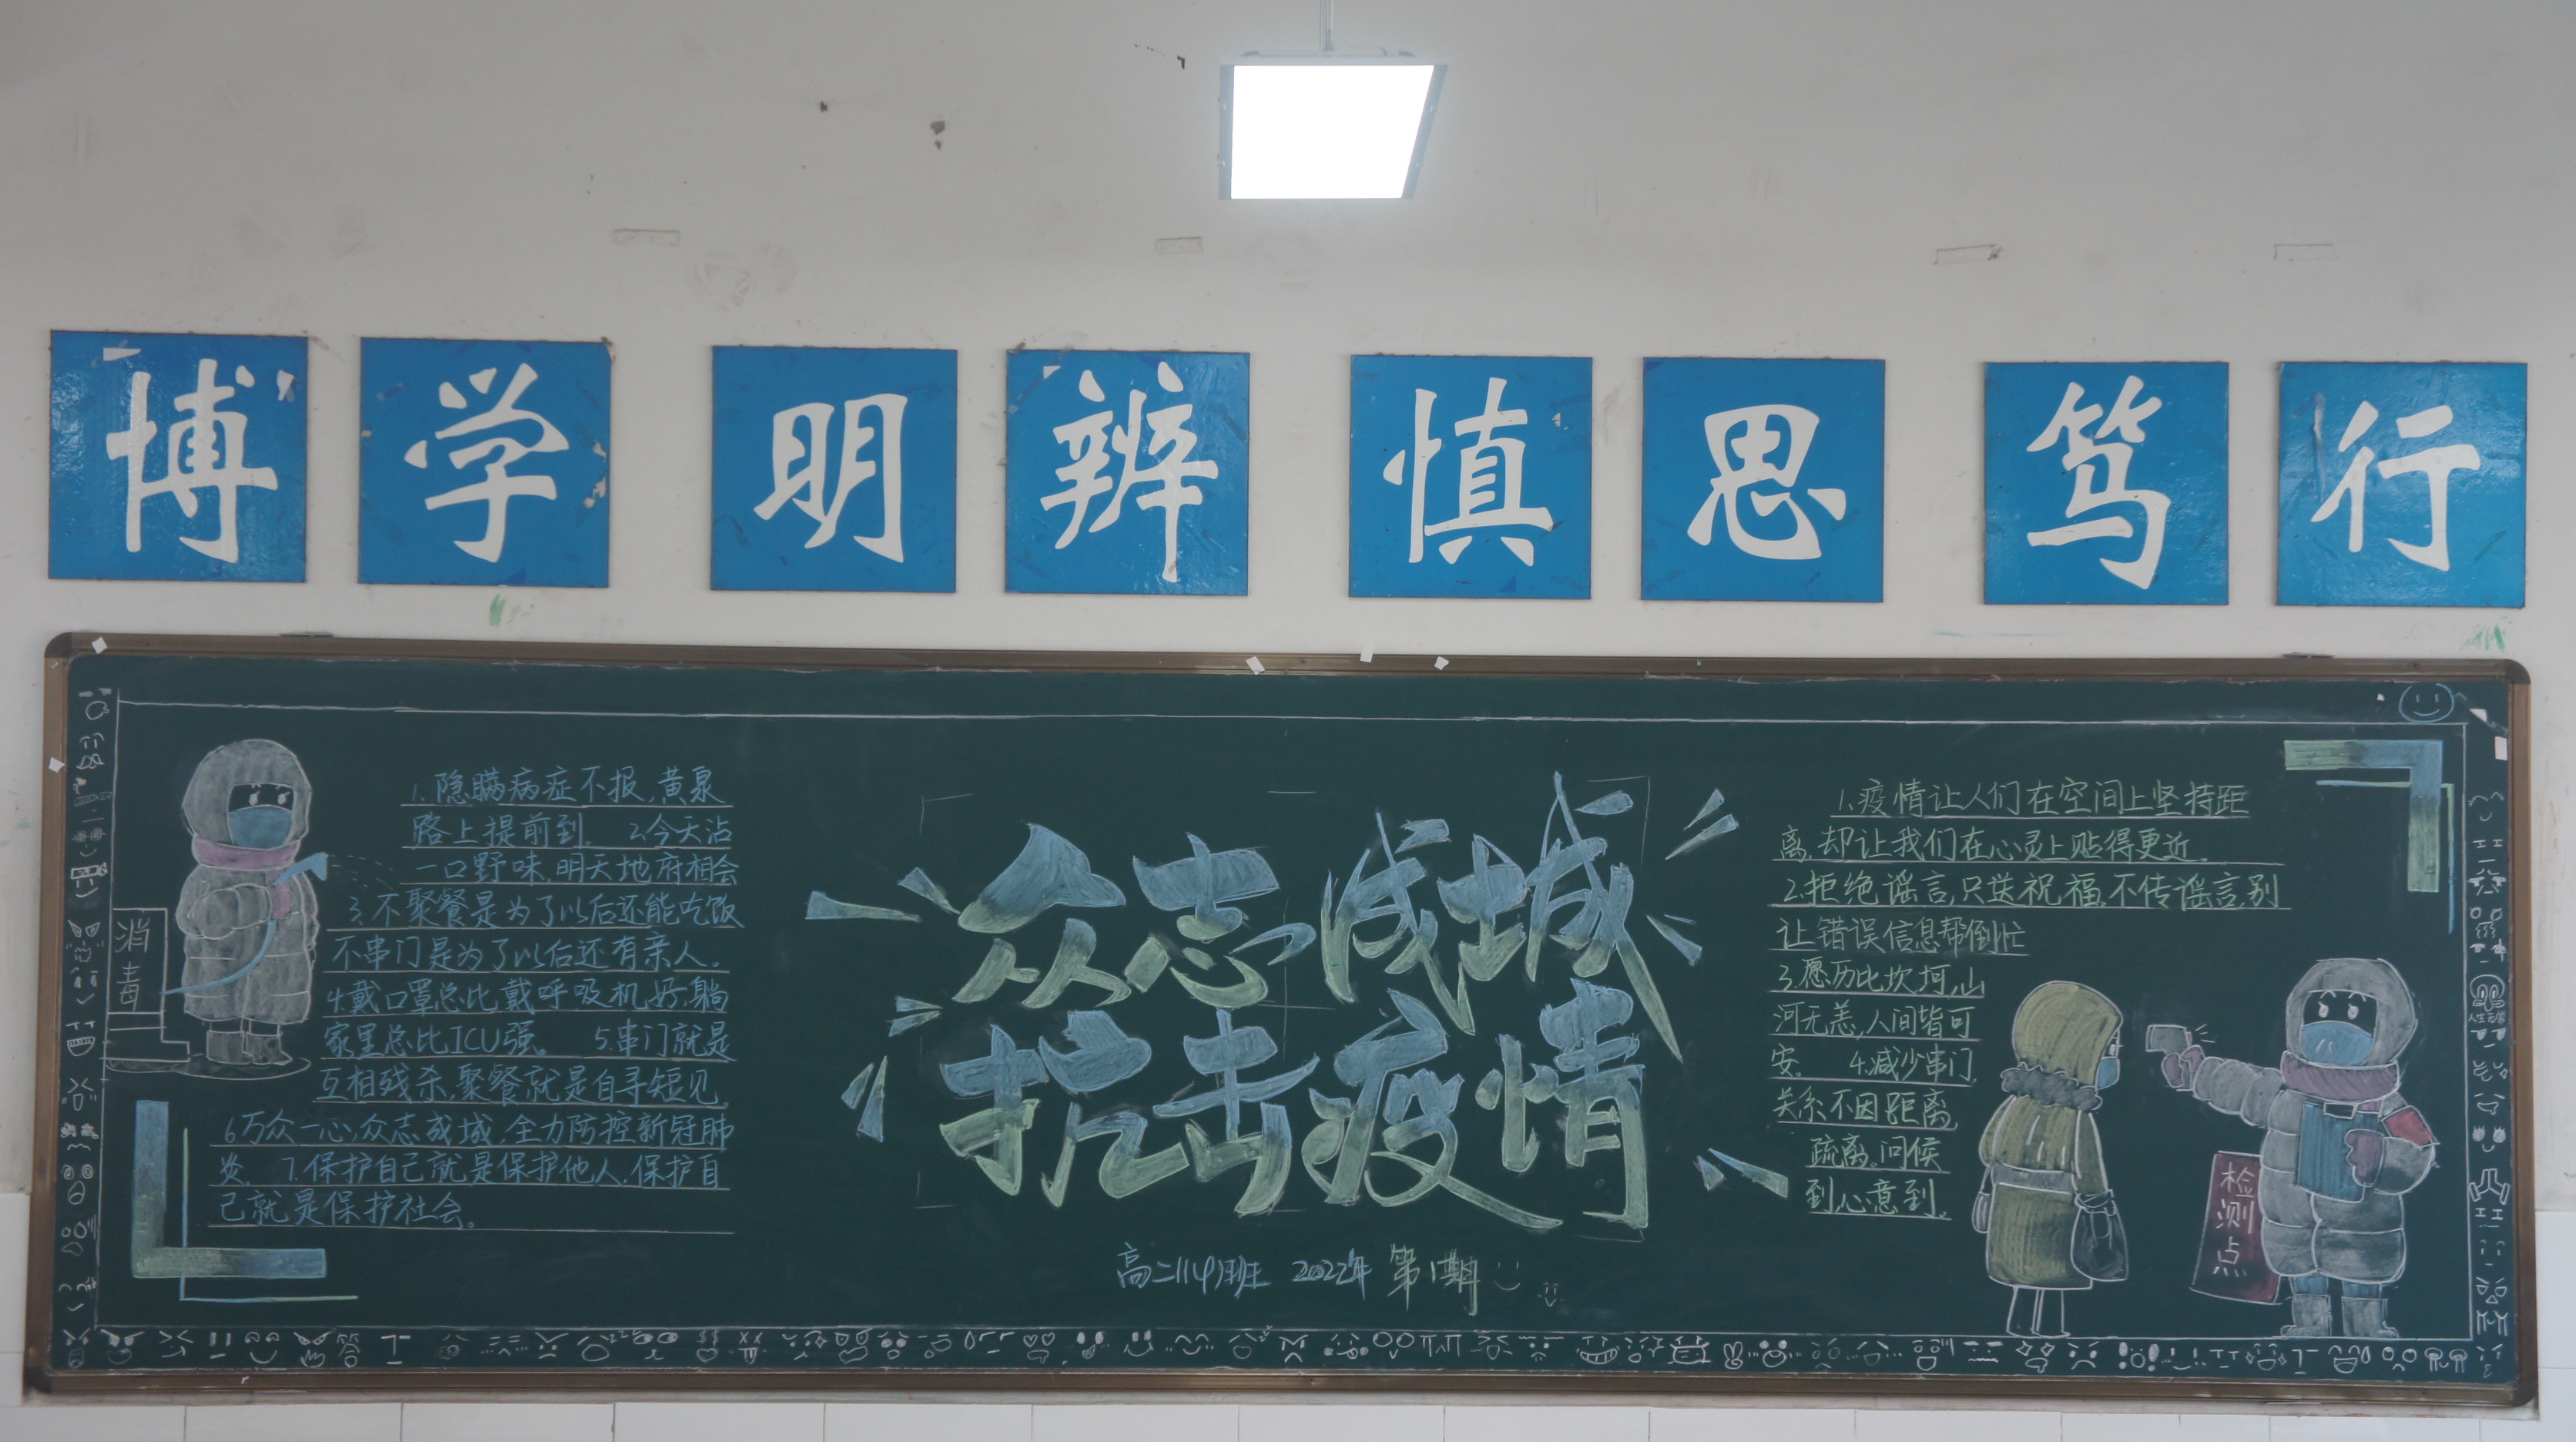 博 学 明 辨 慎 思 笃 行
1.隐瞒病症不报,黄泉
路上提前到。 2.今天沾
一口野味,明天地府相会
3.不聚餐是为了以后还能吃饭
不串门是为了以后还有亲人。
4.戴口罩总比戴呼吸机好,躺
家里总比ICU强。 5.串门就是
互相残杀,聚餐就是自寻短见。
6.万众一心,众志成城,全力防控新冠肺
炎。 7.保护自己就是保护他人.保护自
己就是保护社会。
消
毒
众志成城
抗击疫情
高二(14)班 2022年 第1期
1.疫情让人们在空间上坚持距
离,却让我们在心灵上贴得更近。
2.拒绝谣言,只送祝福,不传谣言,别
让错误信息帮倒忙
3.愿历比坎坷,山
河无恙,人间皆可
安。 4.减少串门,
关系不因距离
疏离。问候
到,心意到。
检
测
点